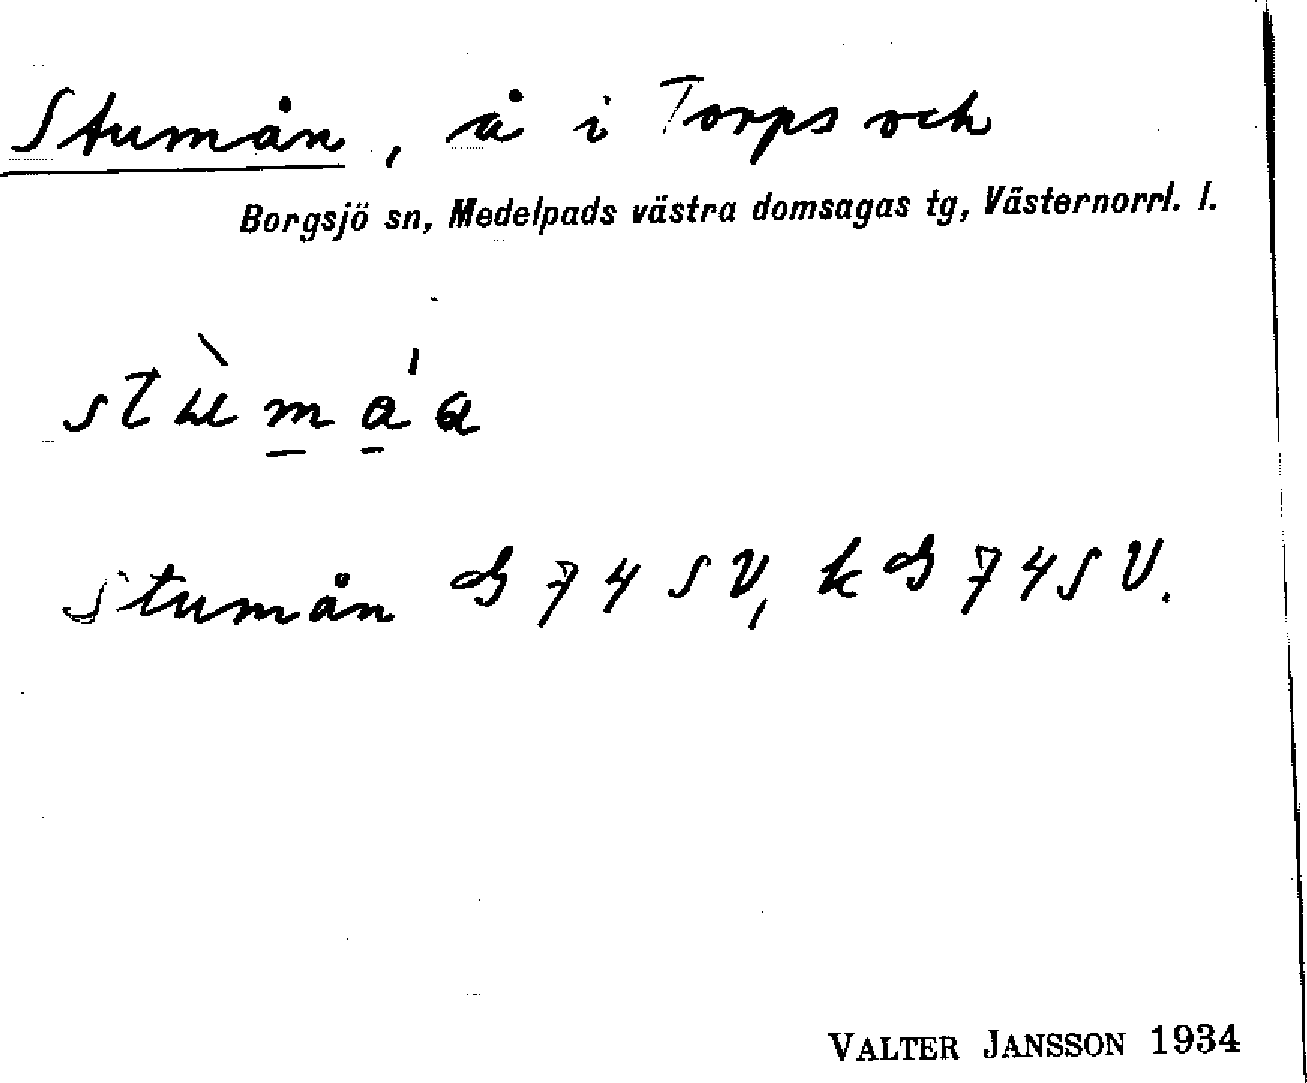 Stumån, å i Torps och
Borgsjö sn, Medelpads västra domsagas tg, Västernorrl. l.
Stumån G 74 SV, k G 74 SV.
VALTER JANSSON 1934